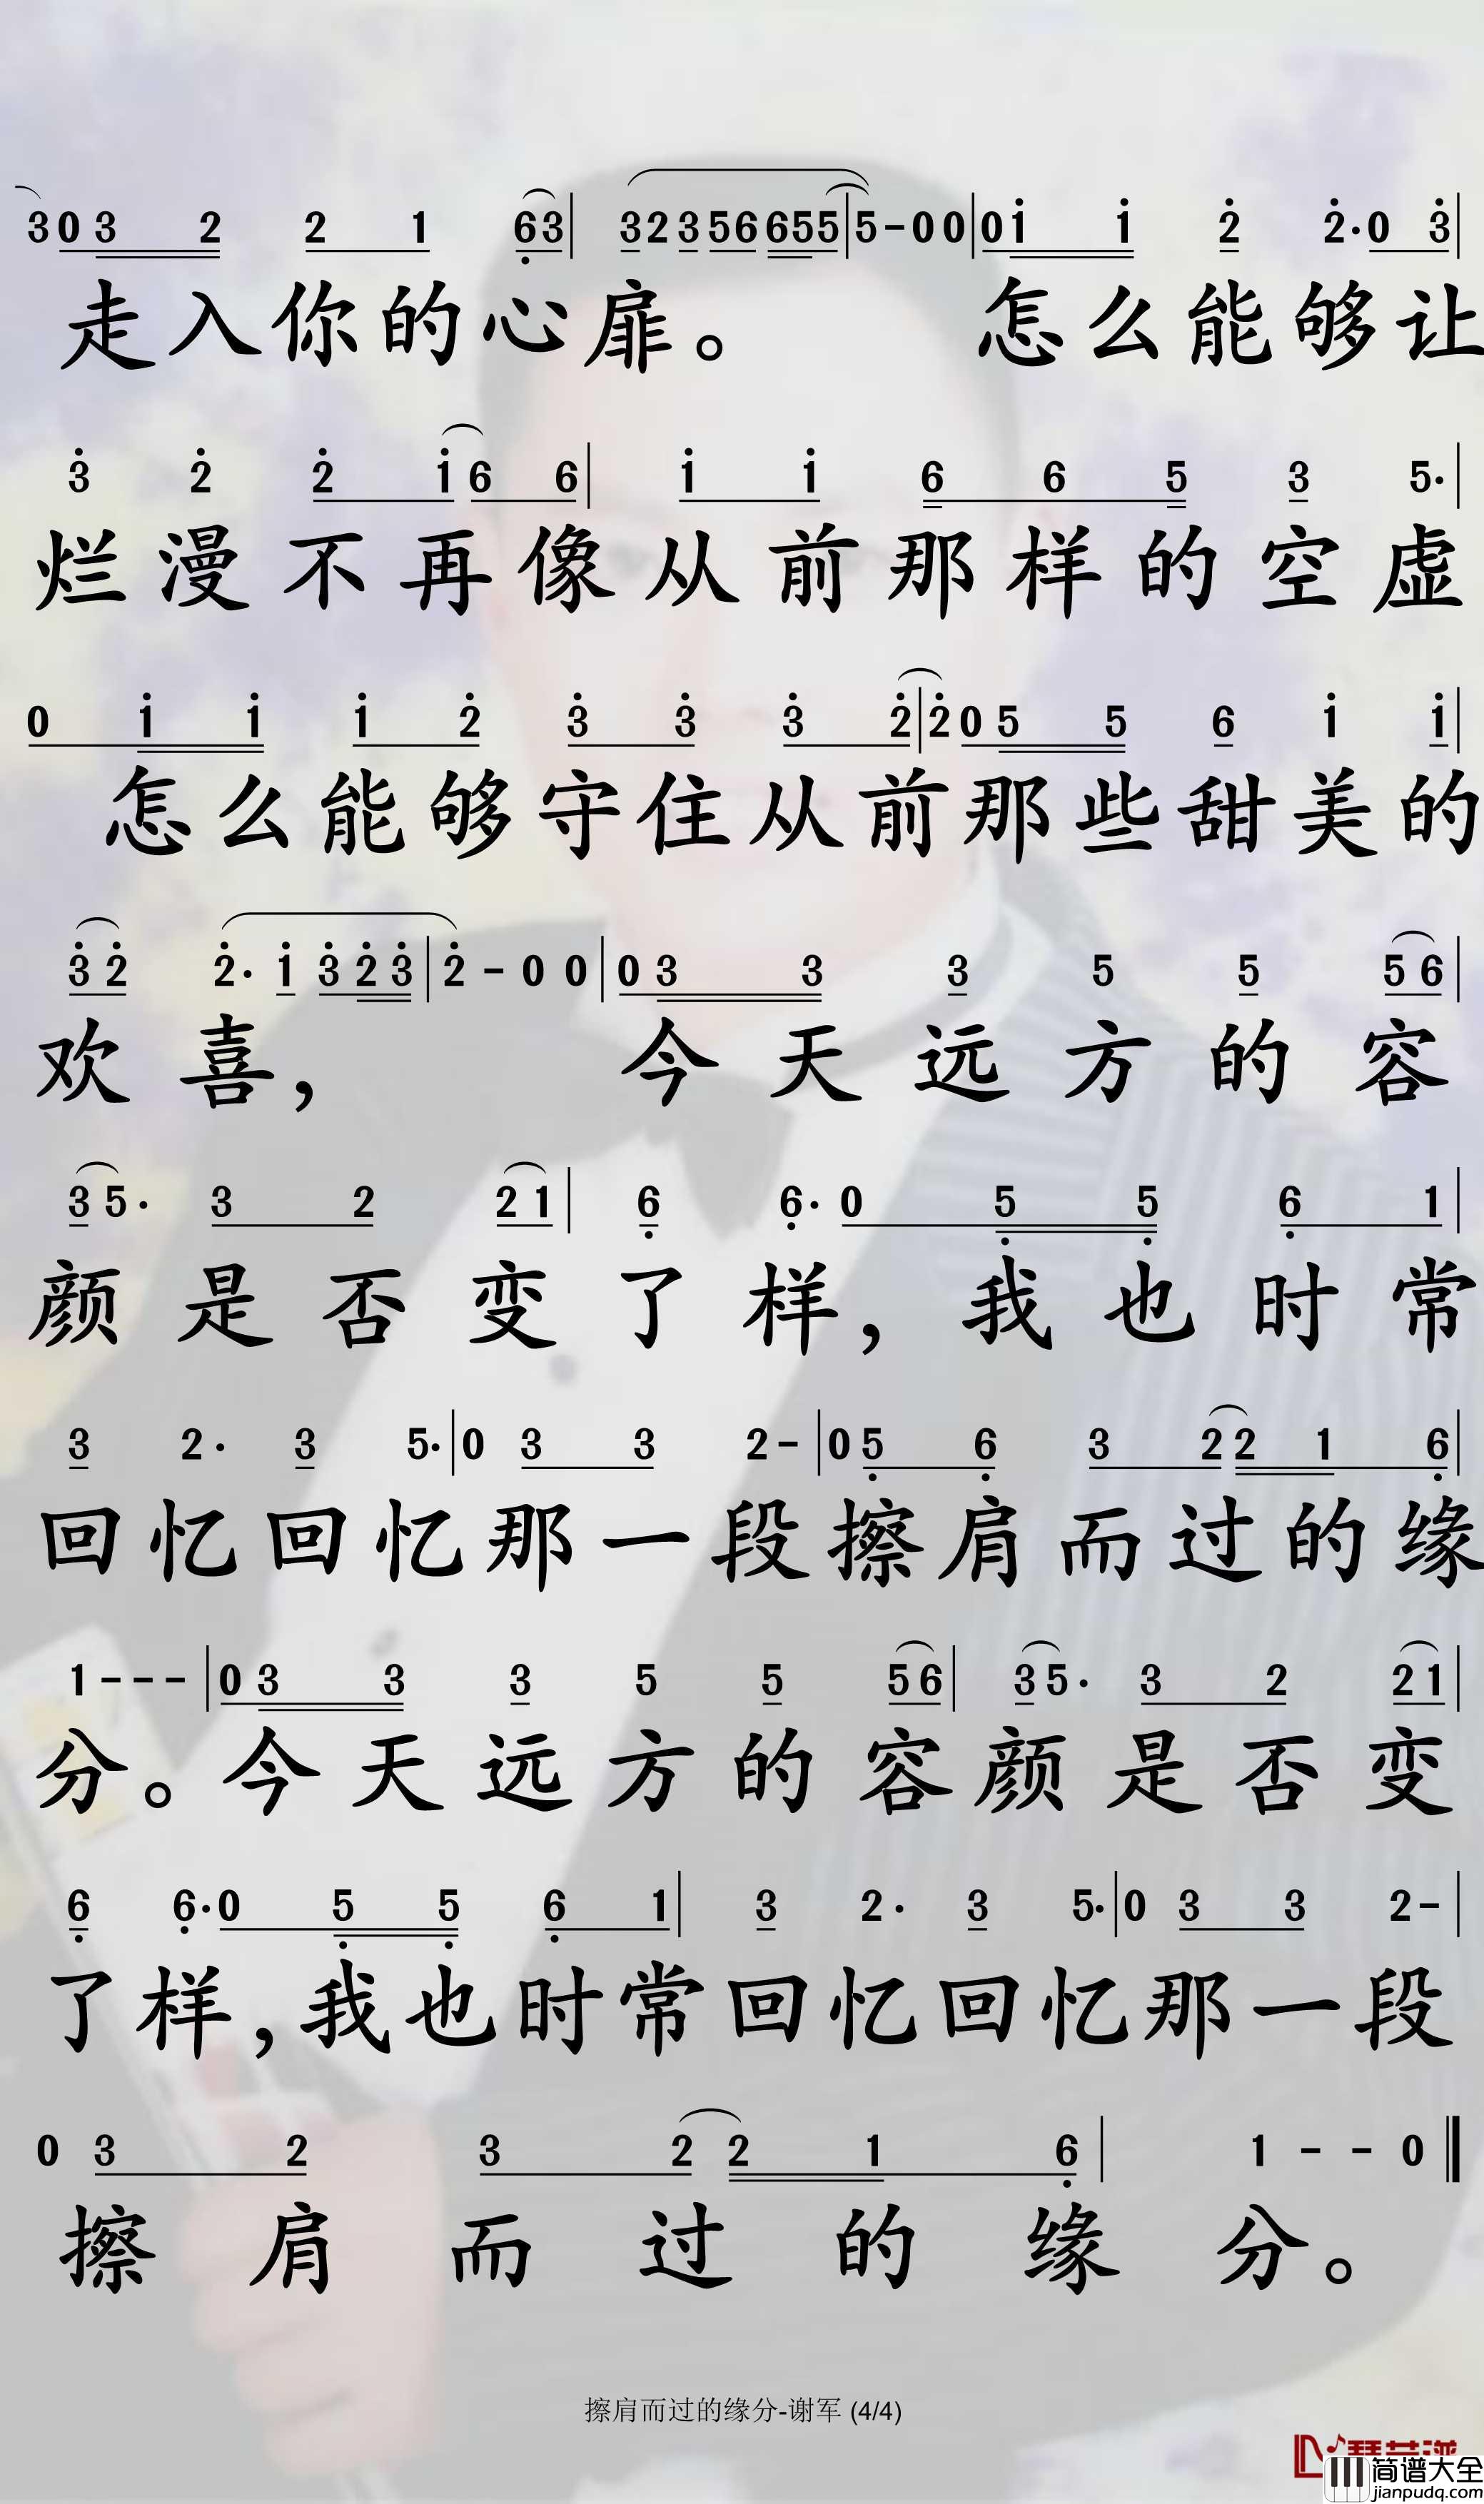 3 0 3 2 2 1 6 3 | 3 2 3 5 6 6 5 5 | 5 - 0 0 | 0 1 1 2 2 · 0 3 |
走入你的心扉。 怎么能够让
3 2 2 1 6 6 | 1 1 6 6 5 3 5 · |
烂漫不再像从前那样的空虚
0 1 1 1 2 3 3 3 2 | 2 0 5 5 6 1 1 |
怎么能够守住从前那些甜美的
3 2 2 · 1 3 2 3 | 2 - 0 0 | 0 3 3 3 5 5 5 6 |
欢喜, 今天远方的容
3 5 · 3 2 2 1 | 6 6 · 0 5 5 6 1 |
颜是否变了样,我也时常
3 2 · 3 5 · | 0 3 3 2 - | 0 5 6 3 2 2 1 6 |
回忆回忆那一段擦肩而过的缘
1 - - - | 0 3 3 3 5 5 5 6 | 3 5 · 3 2 2 1 |
分。今天远方的容颜是否变
6 6 · 0 5 5 6 1 | 3 2 · 3 5 · | 0 3 3 2 - |
了样,我也时常回忆回忆那一段
0 3 2 3 2 2 1 6 | 1 - - 0 ‖
擦肩而过的缘分。
擦肩而过的缘分-谢军 (4/4)
简谱大全
jianpudq.com